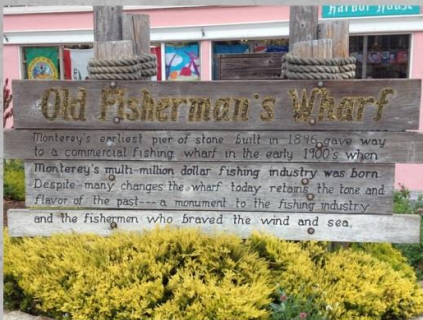 Harbor House
Old Fisherman's Wharf
Monterey's earliest pier of stone built in 1846 gave way
to a commercial fishing wharf in the early 1900's when
Monterey's multi-million dollar fishing industry was born.
Despite many changes the wharf today retains the tone and
flavor of the past---a monument to the fishing industry
and the fishermen who braved the wind and sea.